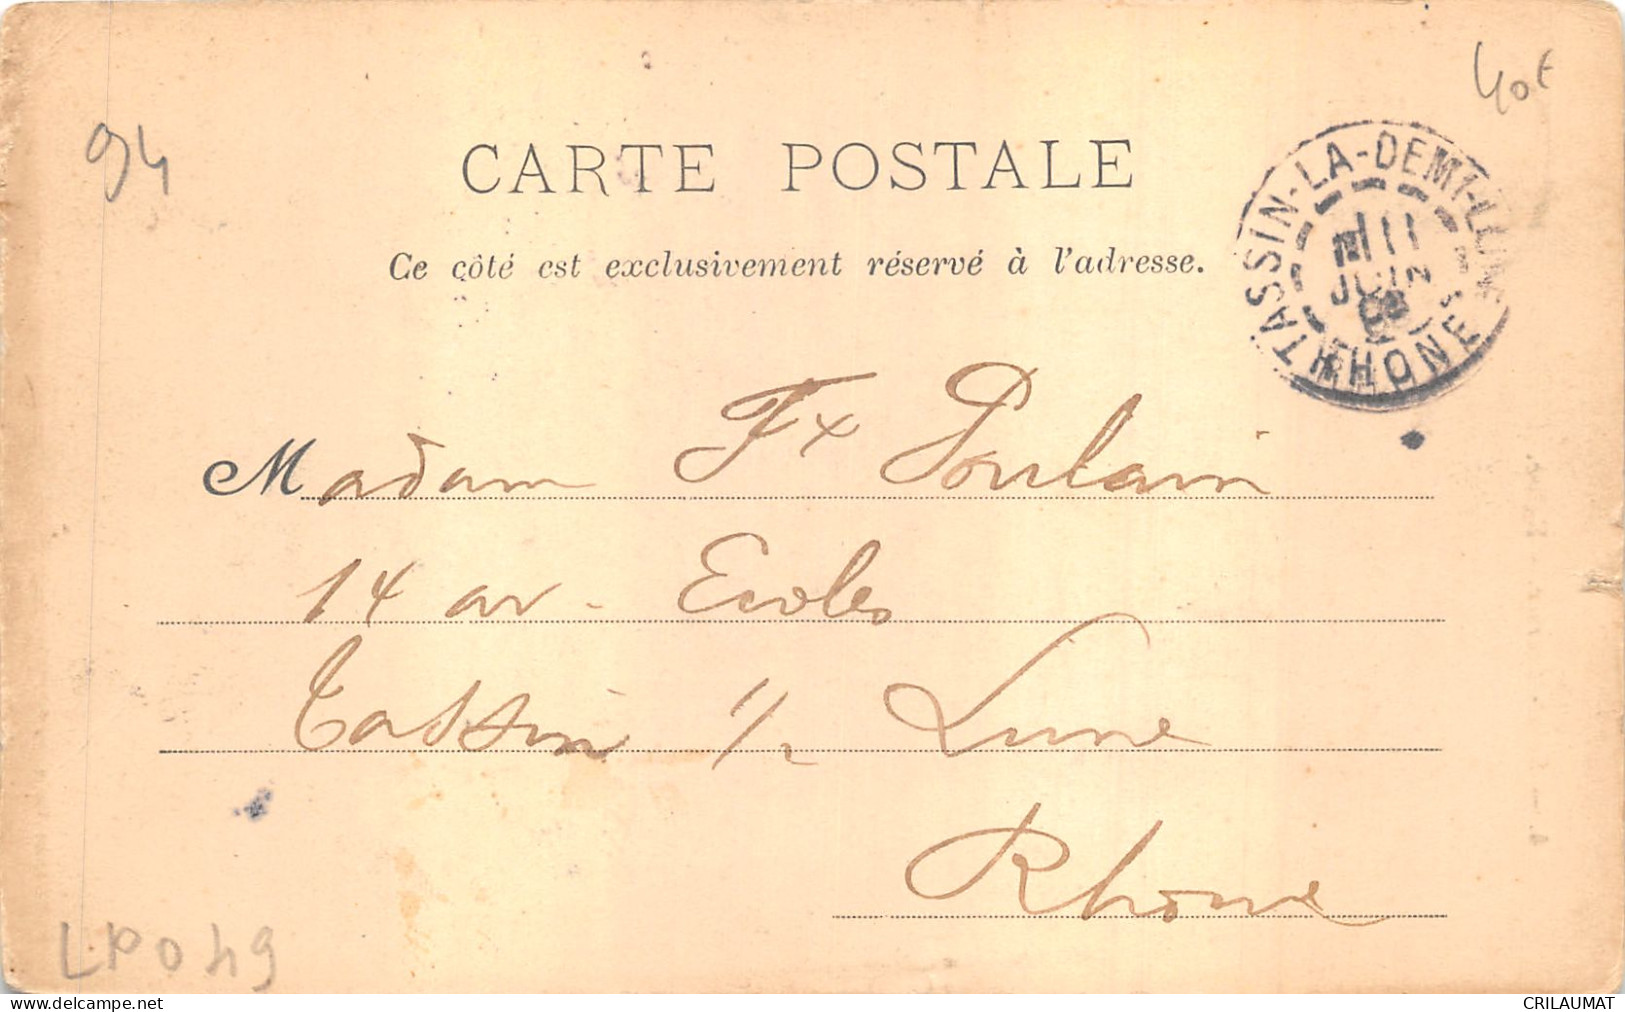 40€
94
CARTE POSTALE
TASSIN-LA-DEMI-LUNE
11
JUIN
03
RHONE
Ce côté est exclusivement réservé à l'adresse.
Madam Fx Poulain
14 av. Ecoles
Tassin 1/2 Lune
Rhône
LP049
www.delcampe.net
CRILAUMAT